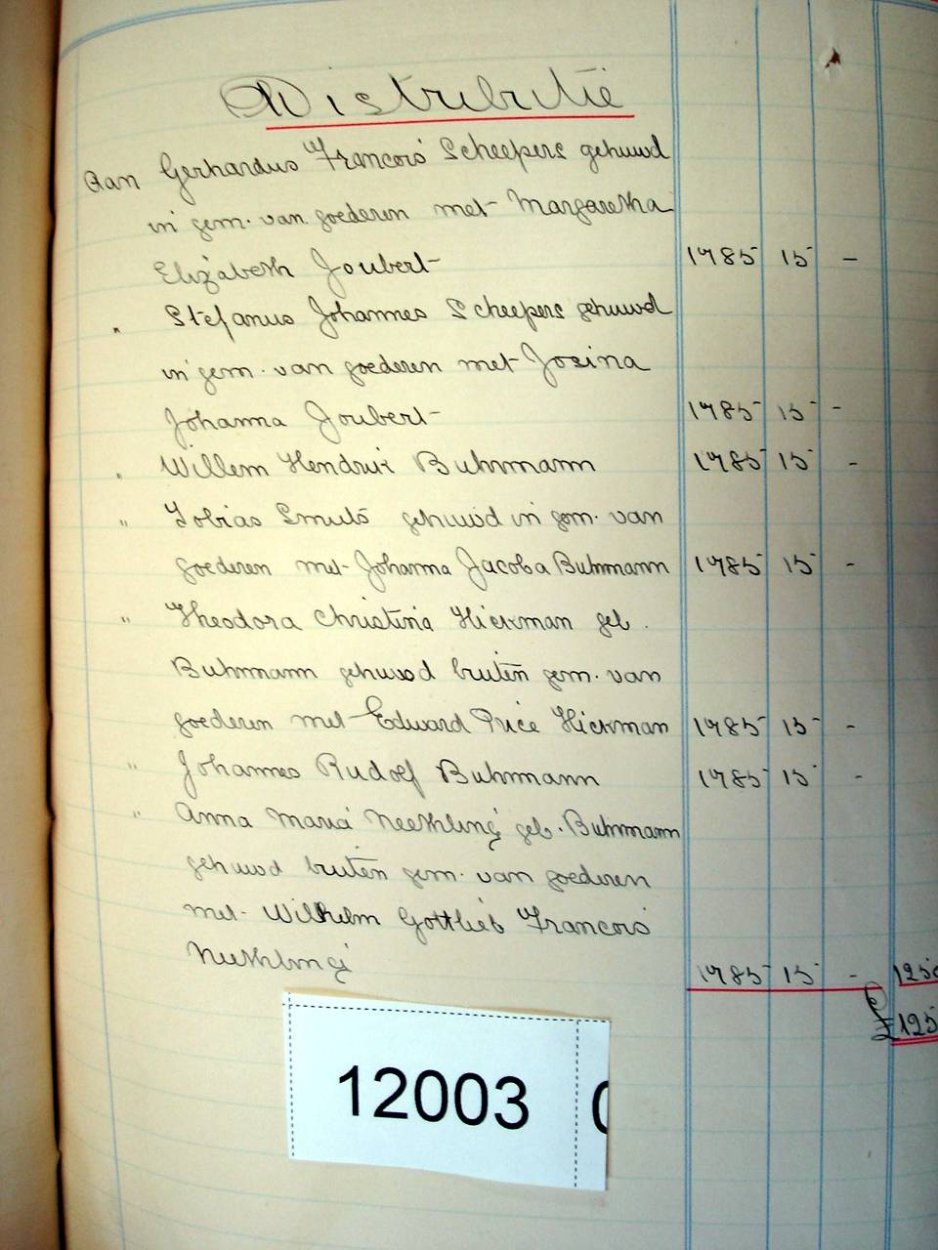 Distributie
Aan Gerhardus Francois Scheepers gehuwd
in gem. van goederen met Margaretha
Elizabeth Joubert 1785 15 -
" Stefanus Johannes Scheepers gehuwd
in gem. van goederen met Josina
Johanna Joubert 1785 15 -
" Willem Hendrik Buhrmann 1785 15 -
" Tobias Smuts gehuwd in gem. van
goederen met Johanna Jacoba Buhrmann 1785 15 -
" Theodora Christina Hickman geb.
Buhrmann gehuwd buiten gem. van
goederen met Edward Price Hickman 1785 15 -
" Johannes Rudolf Buhrmann 1785 15 -
" Anna Maria Neethling geb. Buhrmann
gehuwd buiten gem. van goederen
met Wilhelm Gottlieb Francois
Neethling 1785 15 - 1250
£125
12003